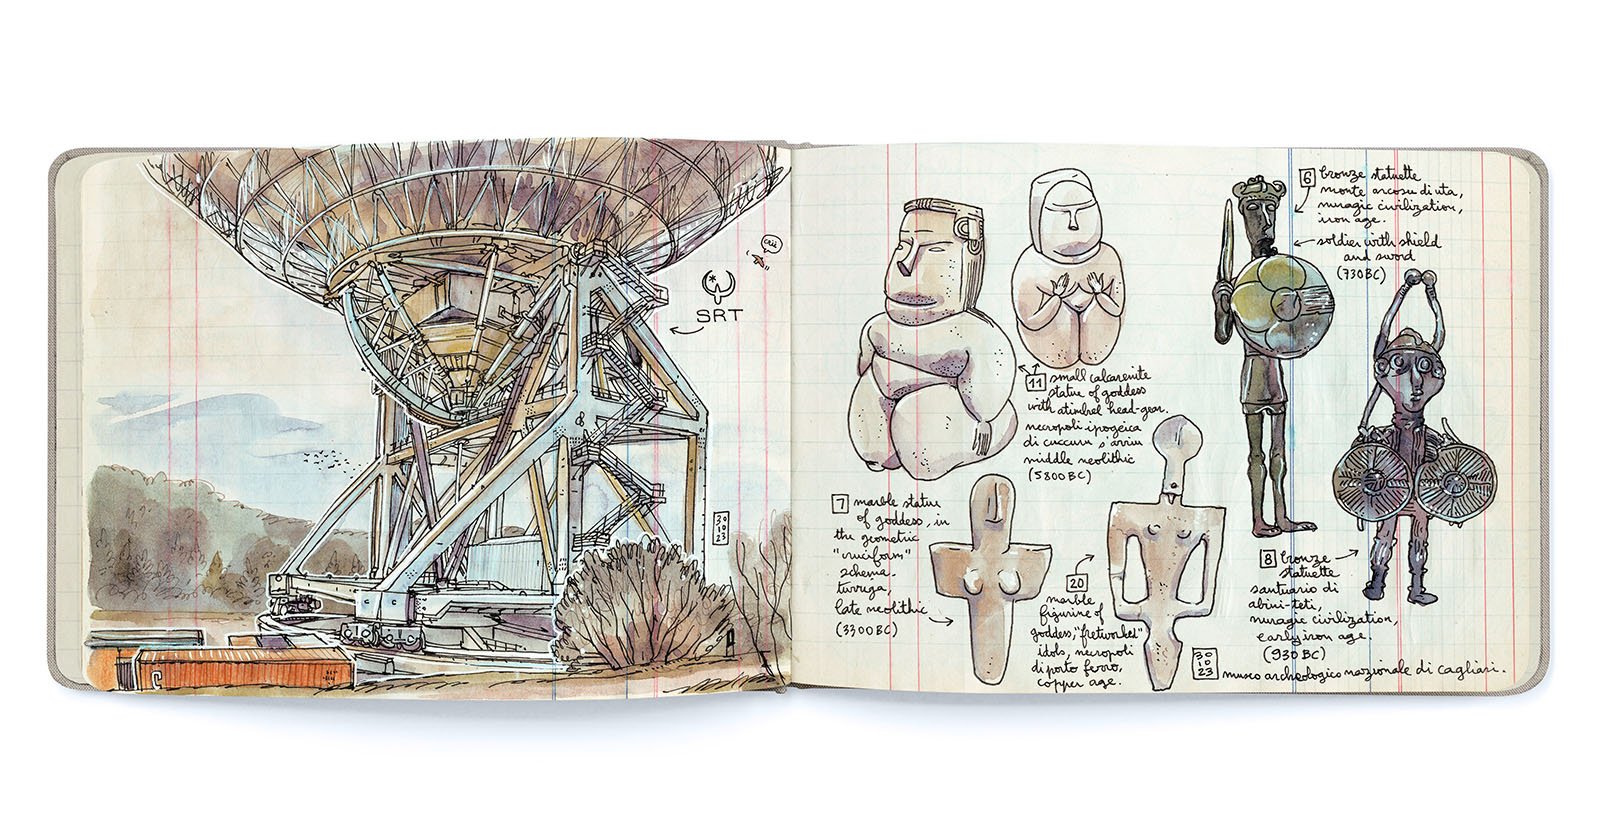 criii
SRT
30
10
23
6 bronze statuette
monte arcosu di uta,
nuragic civilization,
iron age.
soldier with shield
and sword
(730 BC)
11 small calcarenite
statue of goddess
with a timbrel head-gear.
necropoli ipogeica
di cuccuru s'arriu
middle neolithic
(5800 BC)
7 marble statue
of goddess, in
the geometric
"cruciform"
schema.
turriga,
late neolithic
(3300 BC)
20
marble
figurine of
goddess, "fretworked"
idols, necropoli
di porto ferro,
copper age.
8 bronze
statuette
santuario di
abini-teti,
nuragic civilization,
early iron age.
(930 BC)
30
10
23
museo archeologico nazionale di cagliari.